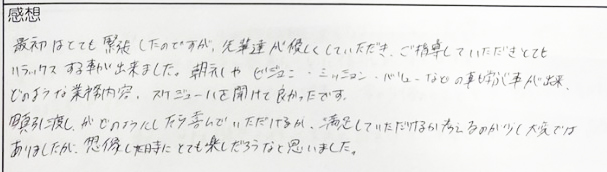 感想
最初はとても緊張したのですが、先輩達が優しくしていただき、ご指導していただきとても
リラックスする事が出来ました。朝礼やビジョン・ミッション・バリューなどの事も学ぶ事が出来、
どのような業務内容、スケジュールを聞けて良かったです。
引渡しがどのようにしたら喜んでいただけるか、満足していただけるか考えるのが少し大変では
ありましたが、想像した時にとても楽しだろうなと思いました。